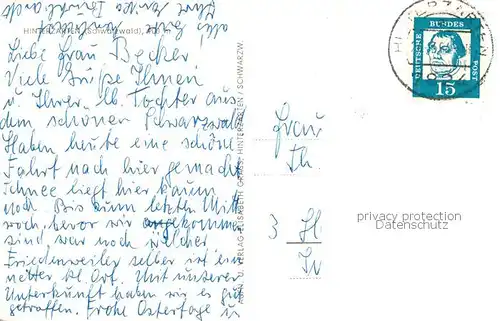 HINTERZARTEN (Schwarzwald),
Liebe Frau Becker
Viele Grüße Ihnen
u. Ihrer lb. Tochter aus
dem schönen Schwarzwald
Haben heute eine schöne
Fahrt nach hier gemacht
Schnee liegt hier kaum
noch. Bis zum letzten Mitt
woch, bevor wir angekommen
sind, war noch welcher
Friedenweiler selber ist ein
netter kl. Ort. Mit unserer
Unterkunft haben wir es gut
getroffen. Frohe Ostertage u
alles Gute
Ihre
Frau
Th
3 H
DEUTSCHE BUNDES POST
15
privacy protection
Datenschutz